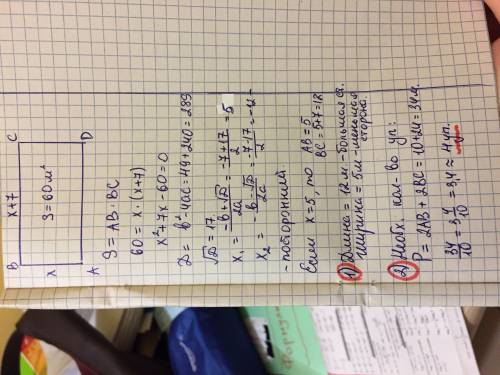 B x+7 C
x S=60м²
A D
S = AB · BC
60 = x · (x+7)
x² + 7x - 60 = 0
D = b² - 4ac = 49 + 240 = 289
√D = 17
x₁ = (-b+√D)/2a = (-7+17)/2 = 5
x₂ = (-b-√D)/2a = (-7-17)/2 = -12 -
- посторонний
Если x = 5, то AB = 5
BC = 5+7 = 12
1) Длина = 12м - большая ст.
ширина = 5м - меньшая
сторона.
2) Необх. кол-во уп:
P = 2AB + 2BC = 10 + 24 = 34м.
34/10 = 3 4/10 = 3,4 ≈ 4 уп.
Формулы